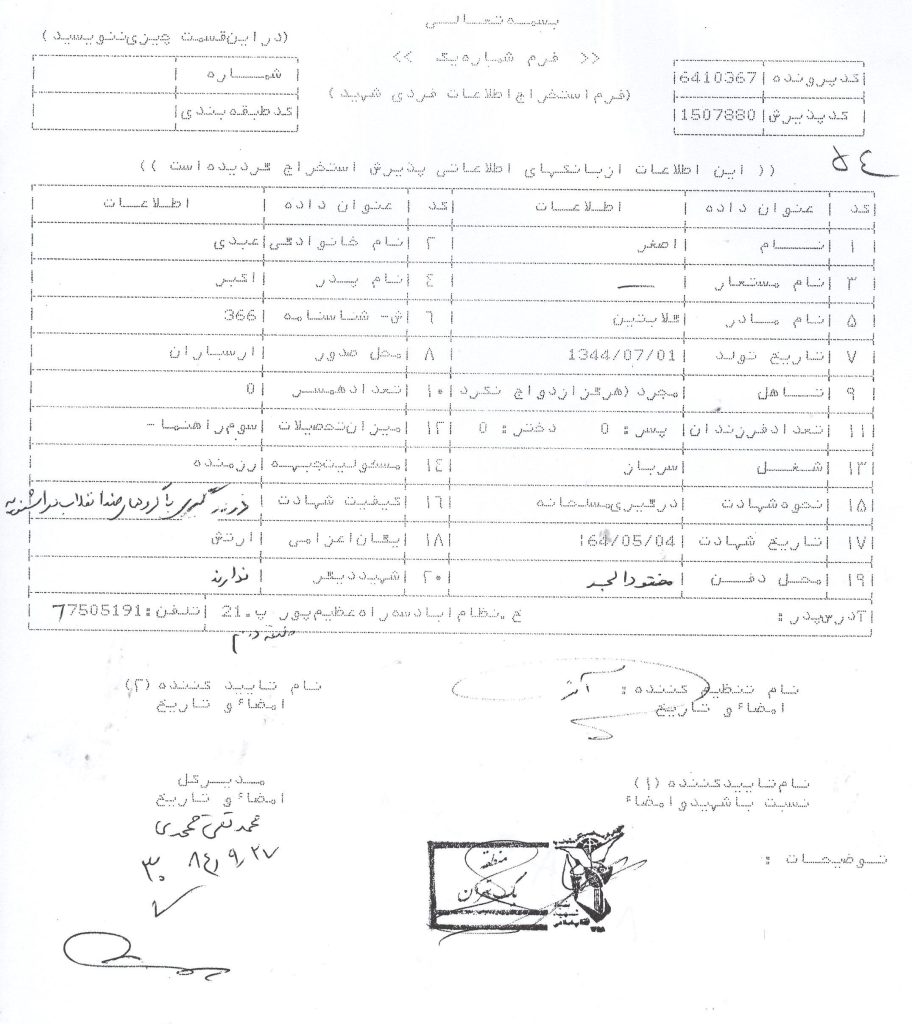 بسمه تعالی
(در این قسمت چیزی ننویسید)
<< فرم شماره یک >>
(فرم استخراج اطلاعات فردی شهید)
شماره
کد طبقه بندی
کد پرونده 6410367
کد پذیرش 1507880
(( این اطلاعات از بانکهای اطلاعاتی پذیرش استخراج گردیده است ))
کد عنوان داده اطلاعات کد عنوان داده اطلاعات
۱ نام اصغر ۲ نام خانوادگی عبدی
۳ نام مستعار — ۴ نام پدر اکبر
۵ نام مادر گلابتین ۶ ش- شناسنامه 366
۷ تاریخ تولد 1344/07/01 ۸ محل صدور ارسباران
۹ تاهل مجرد (هرگز ازدواج نکرد ۱۰ تعداد همسر 0
۱۱ تعداد فرزندان پسر: 0 دختر: 0 ۱۲ میزان تحصیلات سوم راهنما -
۱۳ شغل سرباز ۱۴ مسئولیت جبهه رزمنده
۱۵ نحوه شهادت درگیری مسلحانه ۱۶ کیفیت شهادت در درگیری با گروههای ضد انقلاب در اشنویه
۱۷ تاریخ شهادت 64/05/04 ۱۸ یگان اعزامی ارتش
۱۹ محل دفن مفقودالجسد ۲۰ شهید دیگر ندارند
آدرس پدر: خ.نظام اباد سه راه عظیم پور پ.21 تلفن: 77505191
طبقه دوم
نام تنظیم کننده:
امضاء و تاریخ
نام تایید کننده (۲)
امضاء و تاریخ
نام تایید کننده (۱)
نسبت با شهید و امضاء
مدیر کل
امضاء و تاریخ
محمد تقی
۸۴٫۹٫۲۷
توضیحات :
منطقه
یک تهران